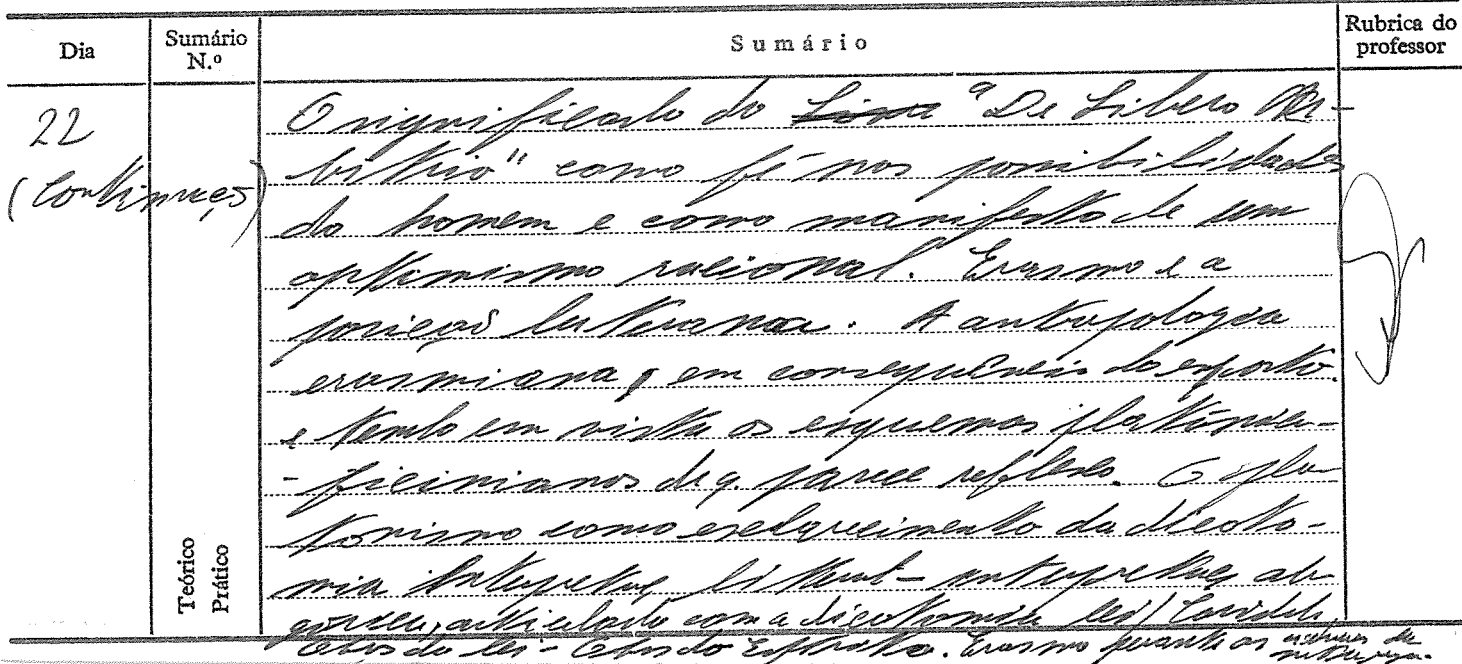 Dia
Sumário N.º
Sumário
Rubrica do professor
22
(Continuação)
Teórico
Prático
O significado do "De Libero Ar-
bitrio" como fé nas possibilidades
do homem e como manifesto de um
optimismo racional. Erasmo e a
posição luterana. A antropologia
erasmiana, em consequência do exposto
e tendo em vista os esquemas platónico-
-ficinianos de q. parece reflexo. O pla-
tonismo como esclarecimento da dicoto-
mia interpretação literal - interpretação ale-
górica, articulado com a dicotomia lei/
da lei - do Espírito. Erasmo perante os